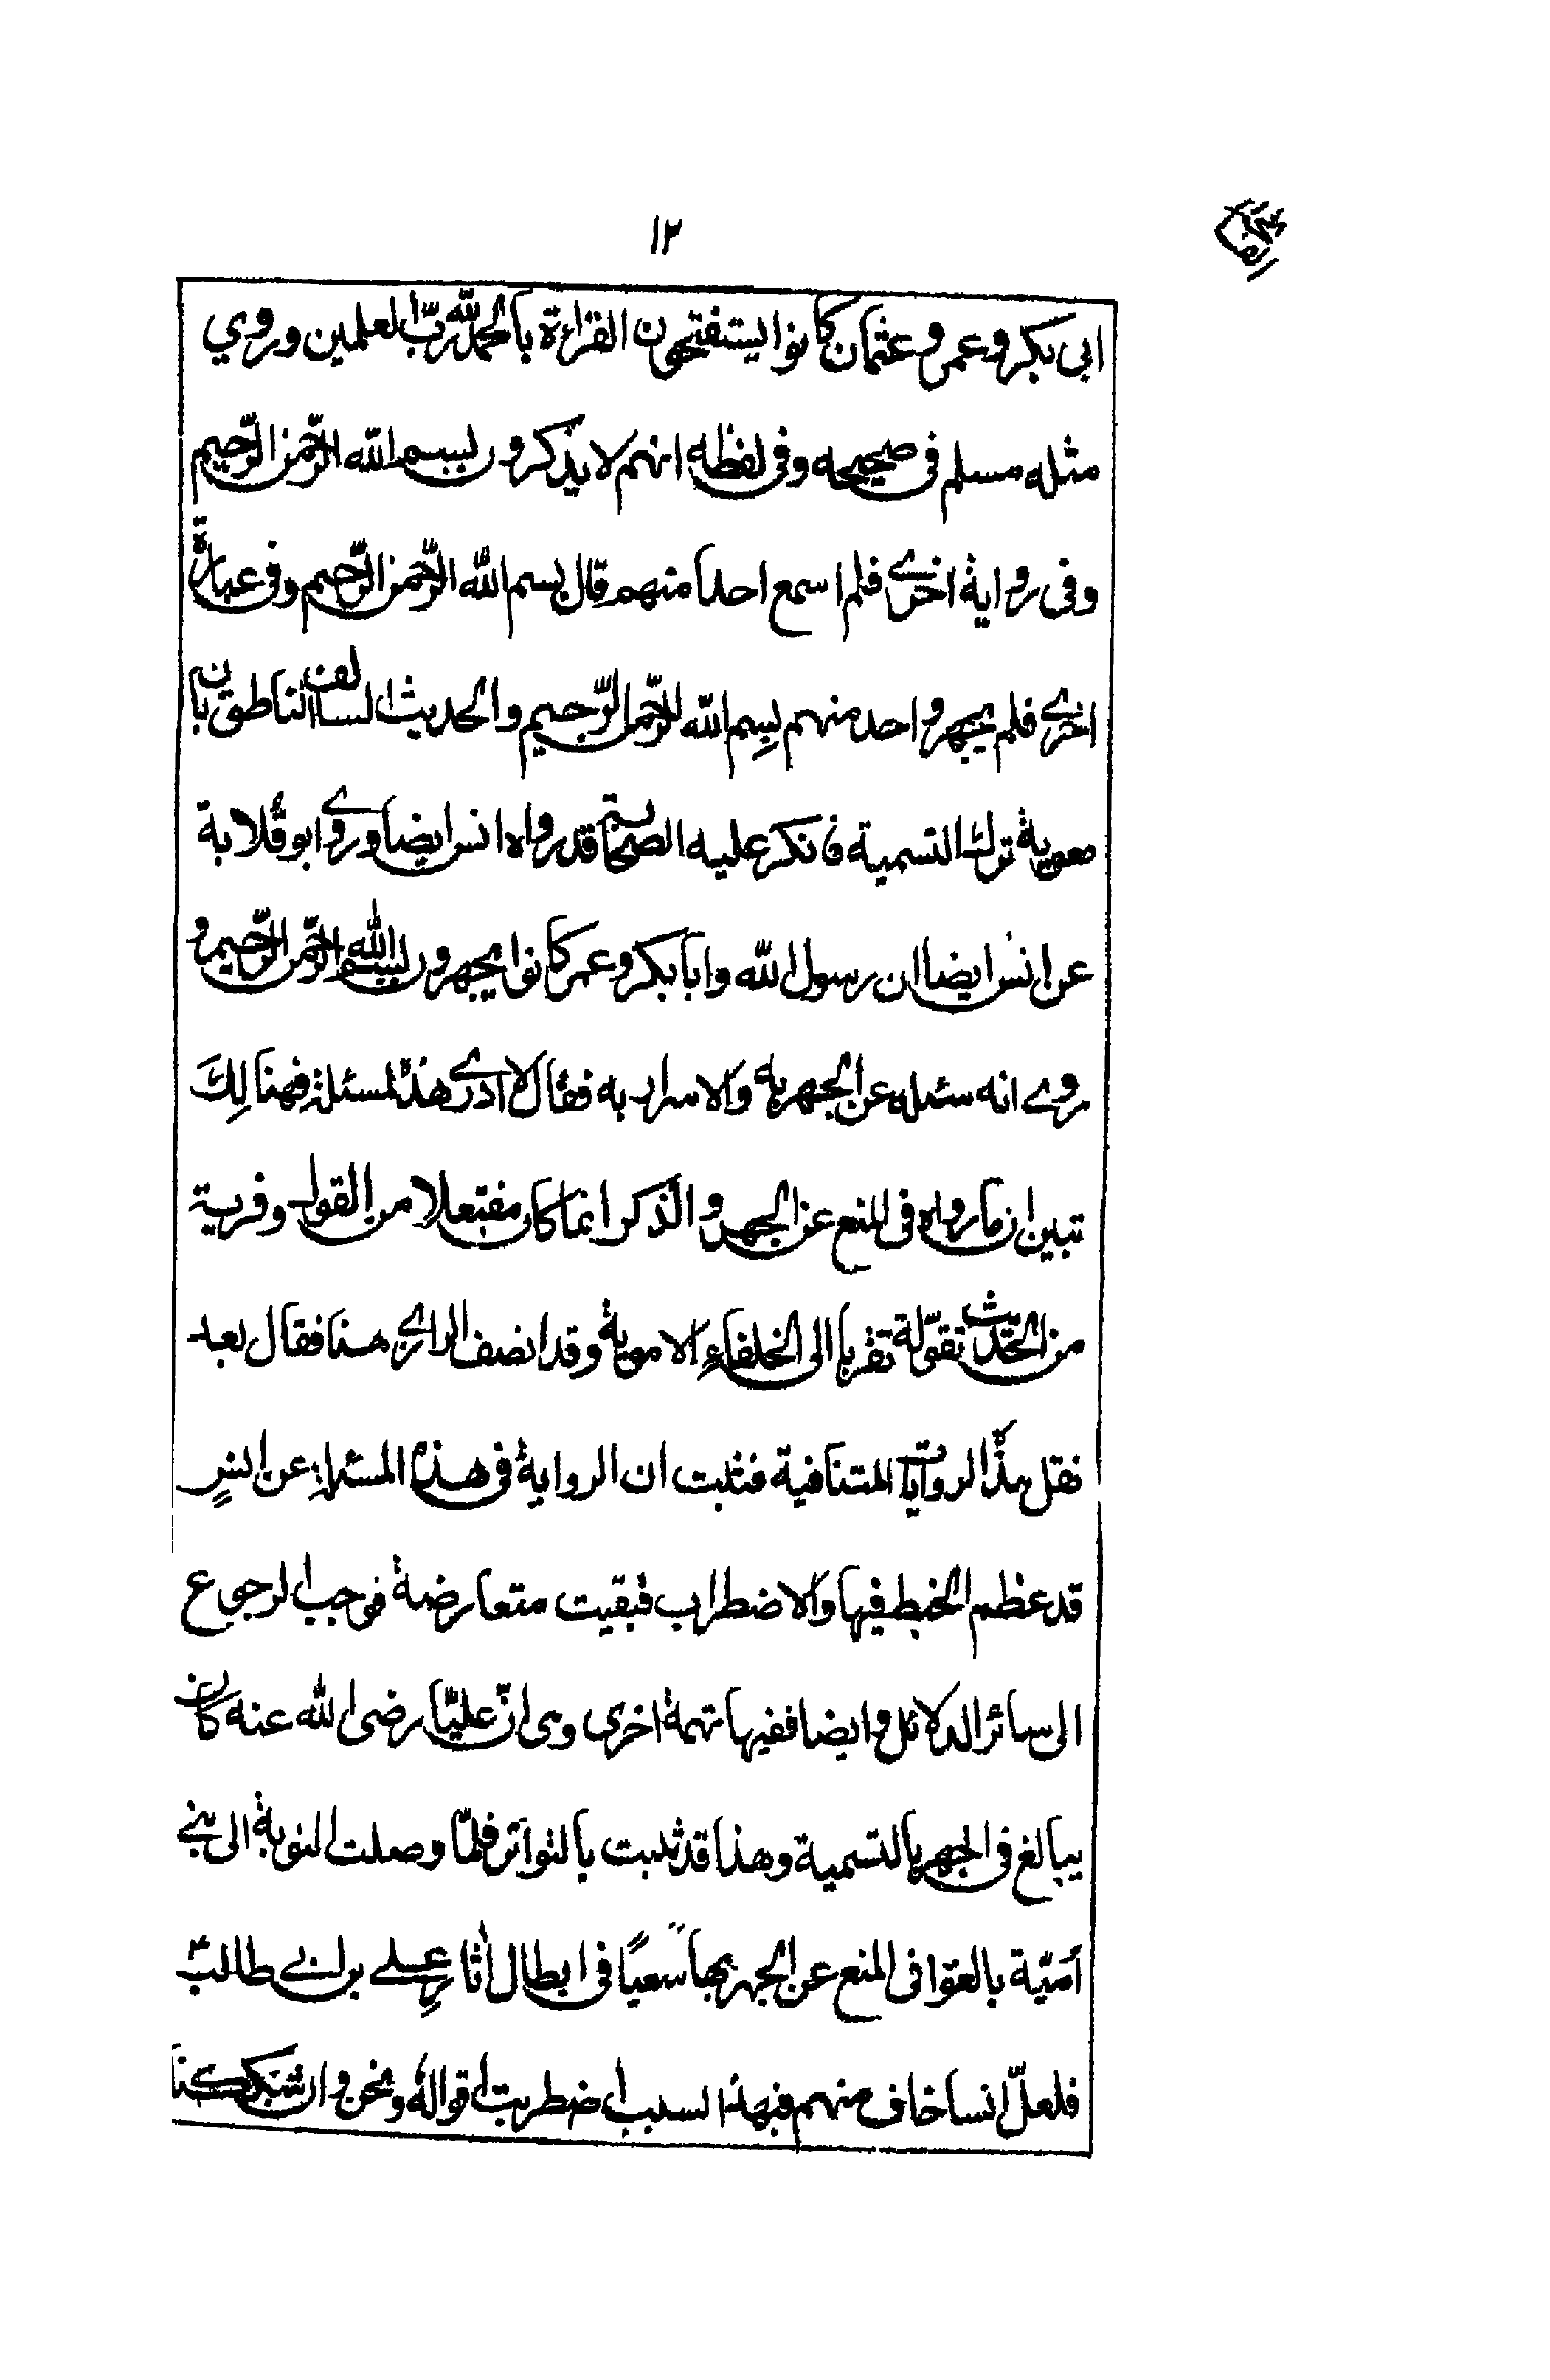 ١٢
ابى بكر وعمر وعثمان كانوا يستفتحون القراءة بالحمد لله ربّ العلمين وروي
مثله مسلم فى صحيحه وفى لفظه انهم لا يذكرون بسم الله الرّحمن الرّحيم
وفى رواية اخرى فلم اسمع احدا منهم قال بسم الله الرّحمن الرّحيم وفى عبارة
اخرى فلم يجهر واحد منهم بِسم الله الرّحمن الرّحيم والحديث السالف الناطق بان
معوية ترك التسمية فانكر عليه الصحابة قد رواه انس ايضا وروى ابو قلابة
عن انس ايضا ان رسول الله وابا بكر وعمر كانوا يجهرون ببسم الله الرّحمن الرّحيم و
روى انه سئل عن الجهر به والاسرار به فقال لا ادرى هذه المسئلة فهنا لِكَ
تبين ان ما رواه فى المنع عن الجهر والذكر انما كان مفتعلا من القول وفرية
من الحديث تقوّله تقربا الى الخلفاءِ الاموية وقد انصف الرازى هنا فقال بعد
نقل هذه الروايات المتنافية فثبت ان الرواية فى هذه المسئلة عن انسٍ
قد عظم الخبط فيها والاضطراب فبقيت متعارضة فوجب الرجوع
الى سائر الدلائل وايضا ففيها تهمة اخرى وهى انّ عليّا رضى الله عنه كان
يبالغ فى الجهر بالتسمية وهذا قد ثبت بالتواتر فلمّا وصلت النوبة الى بنى
أميّة بالغوا فى المنع عن الجهر بها سعيًا فى ابطال اٰثارِ على بن ابى طالب
فلعلّ انسا خاف منهم فبهذا السبب اضطربت اقواله ونحن وان شككنا